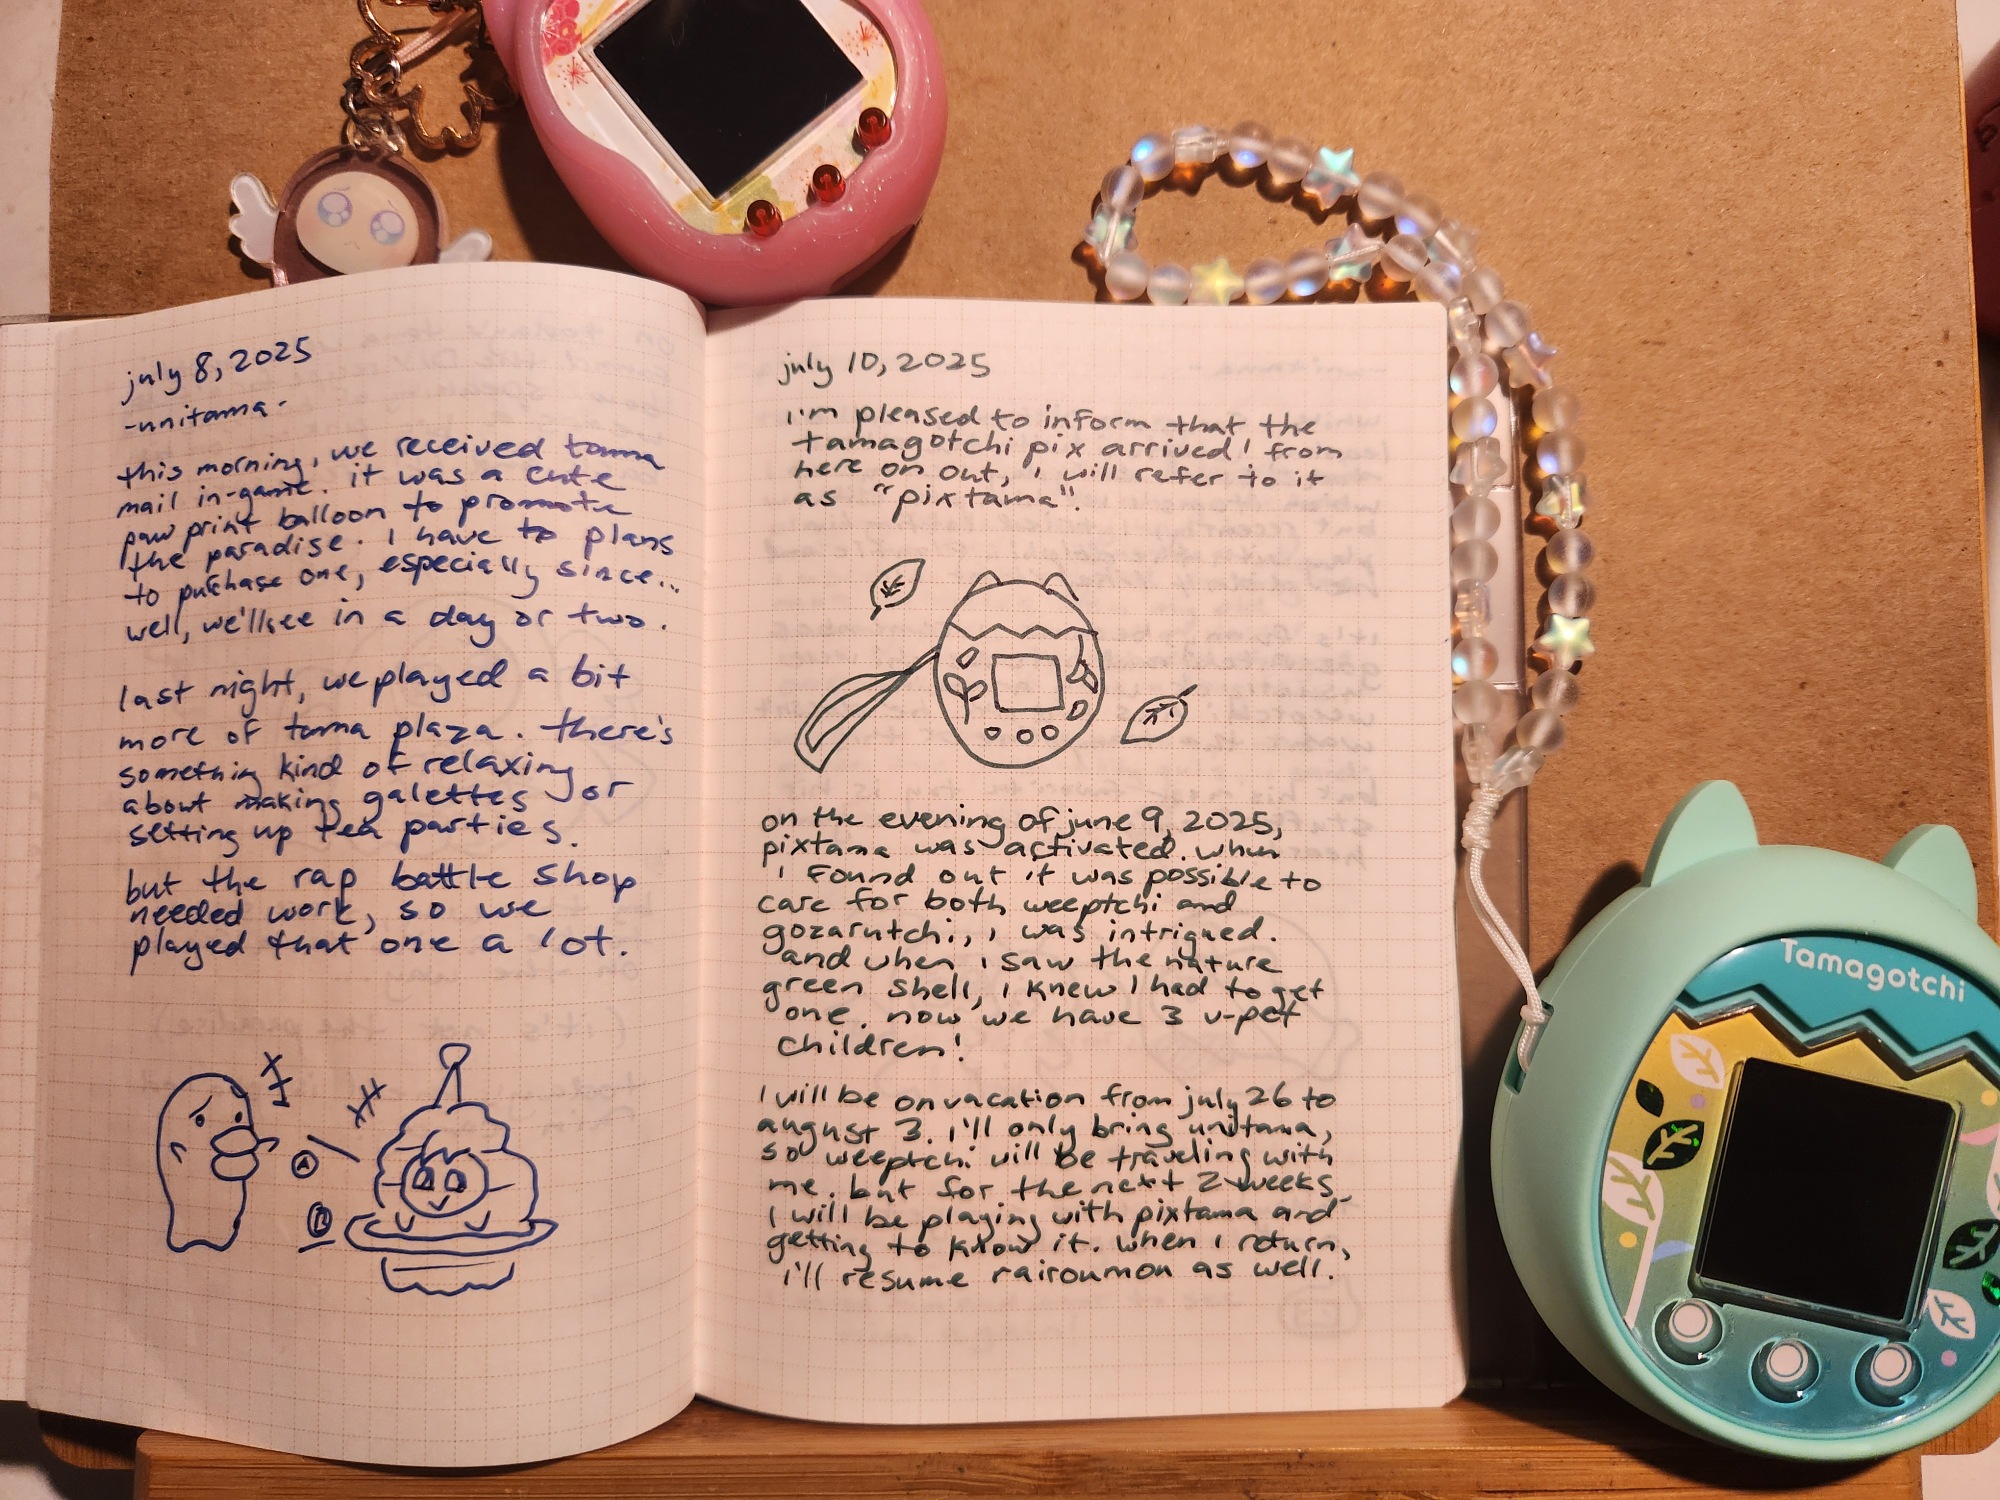 july 8, 2025
-unitama-
this morning, we received tama
mail in-game. it was a cute
paw print balloon to promote
the paradise. i have to plans
to purchase one, especially since...
well, we'll see in a day or two.
last night, we played a bit
more of tama plaza. there's
something kind of relaxing
about making galettes or
setting up tea parties.
but the rap battle shop
needed work, so we
played that one a lot.
A
B
july 10, 2025
i'm pleased to inform that the
tamagotchi pix arrived! from
here on out, i will refer to it
as "pixtama".
on the evening of june 9, 2025,
pixtama was activated. when
i found out it was possible to
care for both weeptchi and
gozarutchi, i was intrigued.
and when i saw the nature
green shell, i knew i had to get
one. now we have 3 v-pet
children!
i will be on vacation from july 26 to
august 3. i'll only bring unitama,
so weeptchi will be traveling with
me. but for the next 2 weeks,
i will be playing with pixtama and
getting to know it. when i return,
i'll resume rairoumon as well.
Tamagotchi